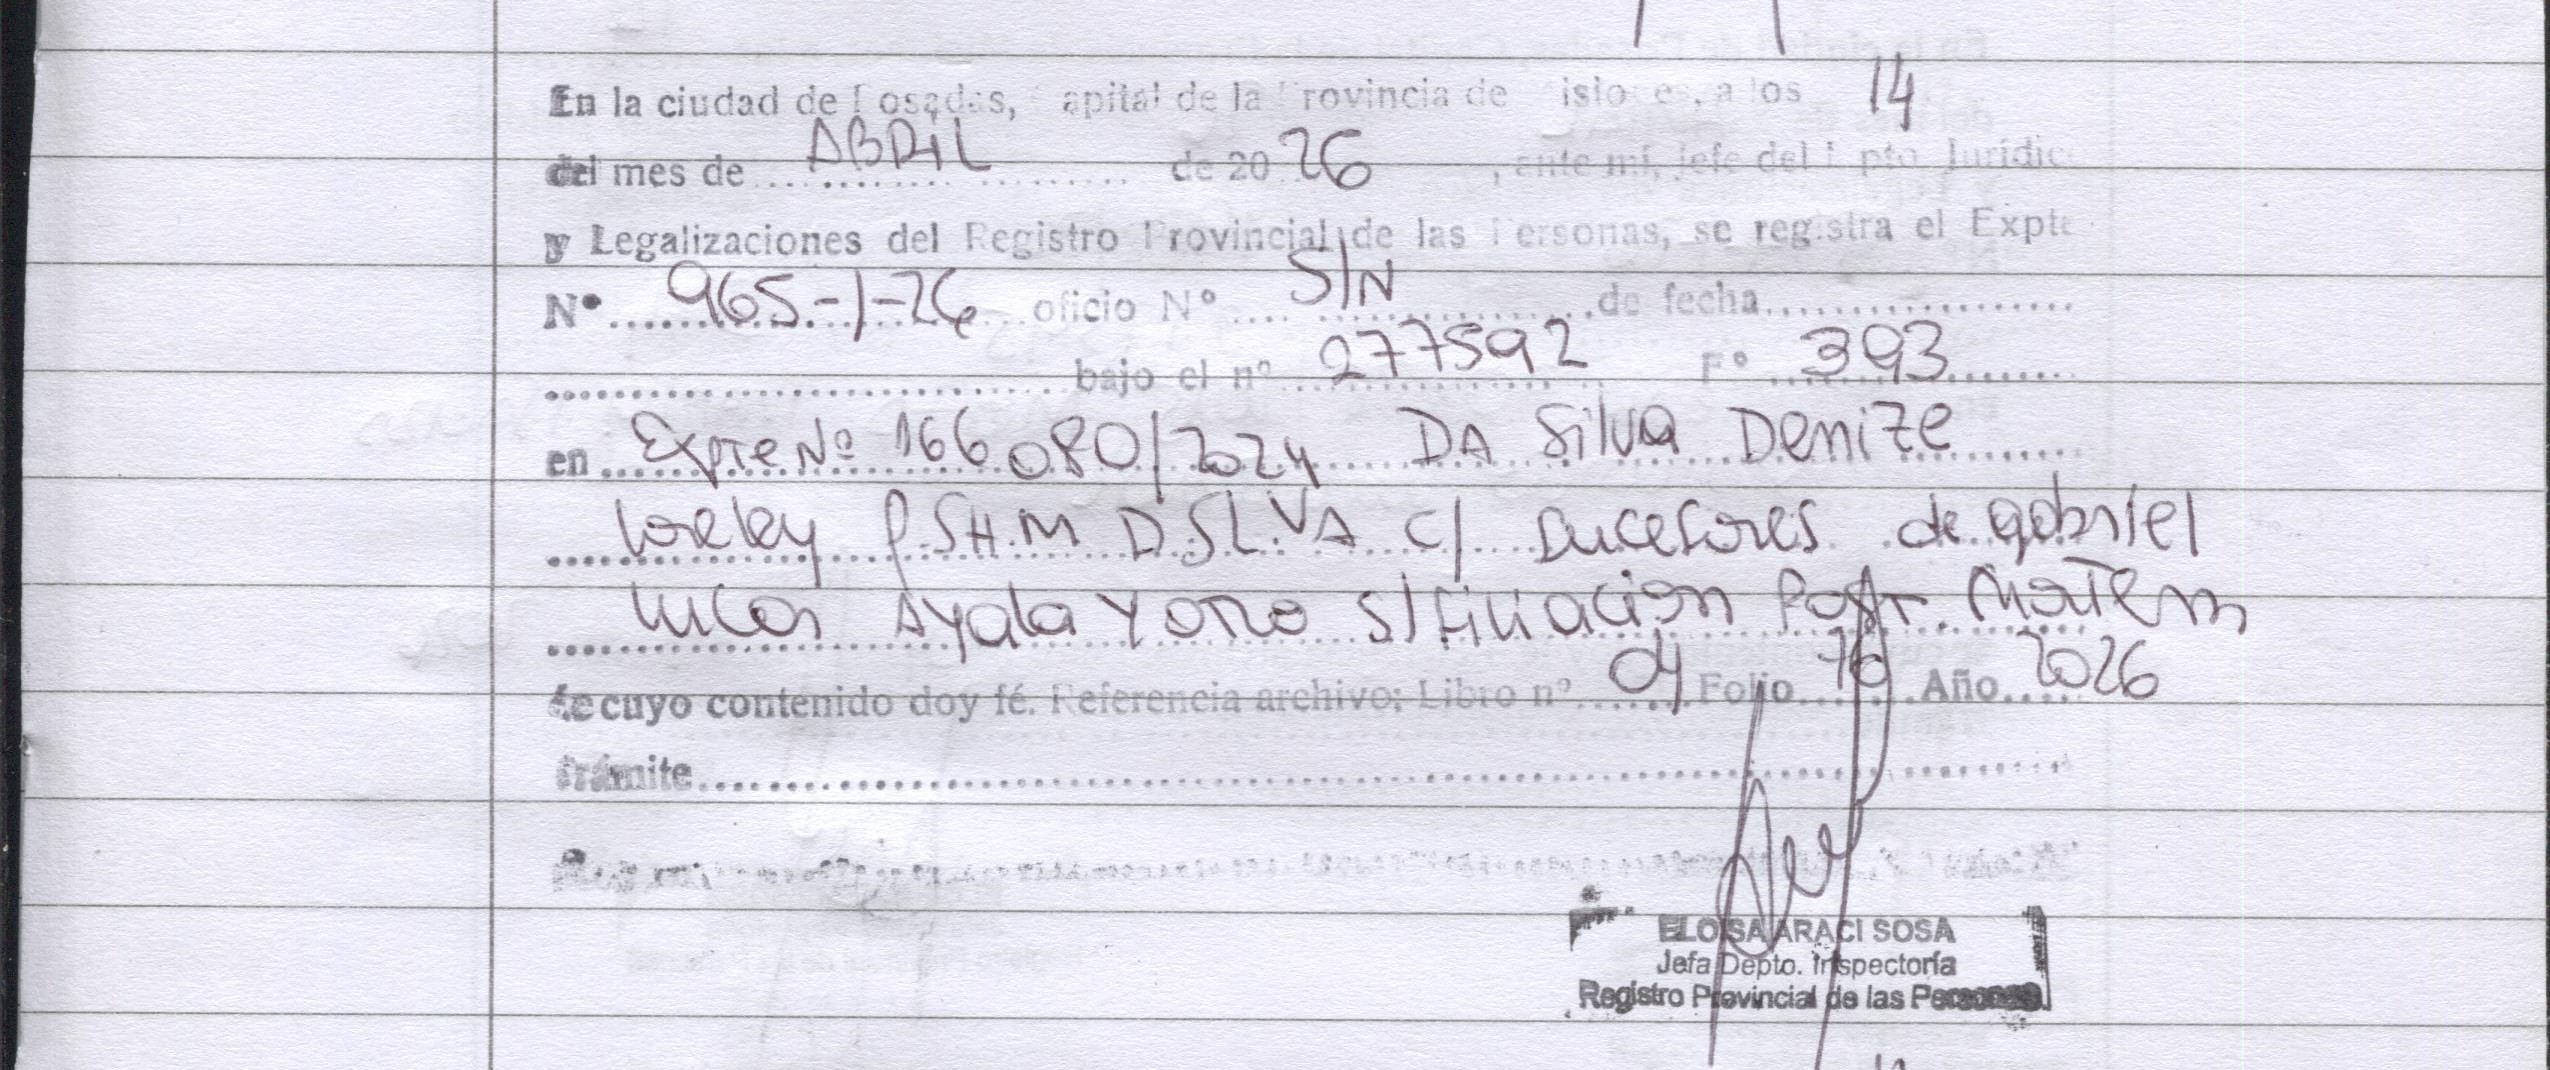 En la ciudad de Posadas, Capital de la Provincia de Misiones, a los 14
del mes de ABRIL de 20 26, ante mí, jefe del Dpto Jurídico
y Legalizaciones del Registro Provincial de las Personas, se registra el Expte
N° 965-1-26 oficio N° S/N de fecha
bajo el n° 277592 F° 393
en Expte Nº 166080/2024 DA Silva Denize
Loreley P.SH.M D.SLVA C/ Sucesores de gabriel
Lucas Ayala Y OTRO S/Filiación Post. Mortem
de cuyo contenido doy fé. Referencia archivo: Libro n° 04 Folio 76 Año 2026
trámite
ELOISA ARACI SOSA
Jefa Depto. Inspectoría
Registro Provincial de las Personas